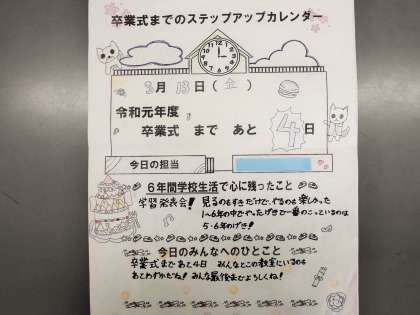 卒業式までのステップアップカレンダー
3月13日(金)
令和元年度
卒業式 まで あと 4日
今日の担当
6年間学校生活で心に残ったこと
学習発表会! 見るのもすきだけど、やるのも楽しかった
1〜6年の中でやったげきで一番のこっているのは
5・6年のげき!
今日のみんなへのひとこと
卒業式まであと4日 みんなとこの教室にいるのも
あとわずかだね! みんな最後までよろしくね!